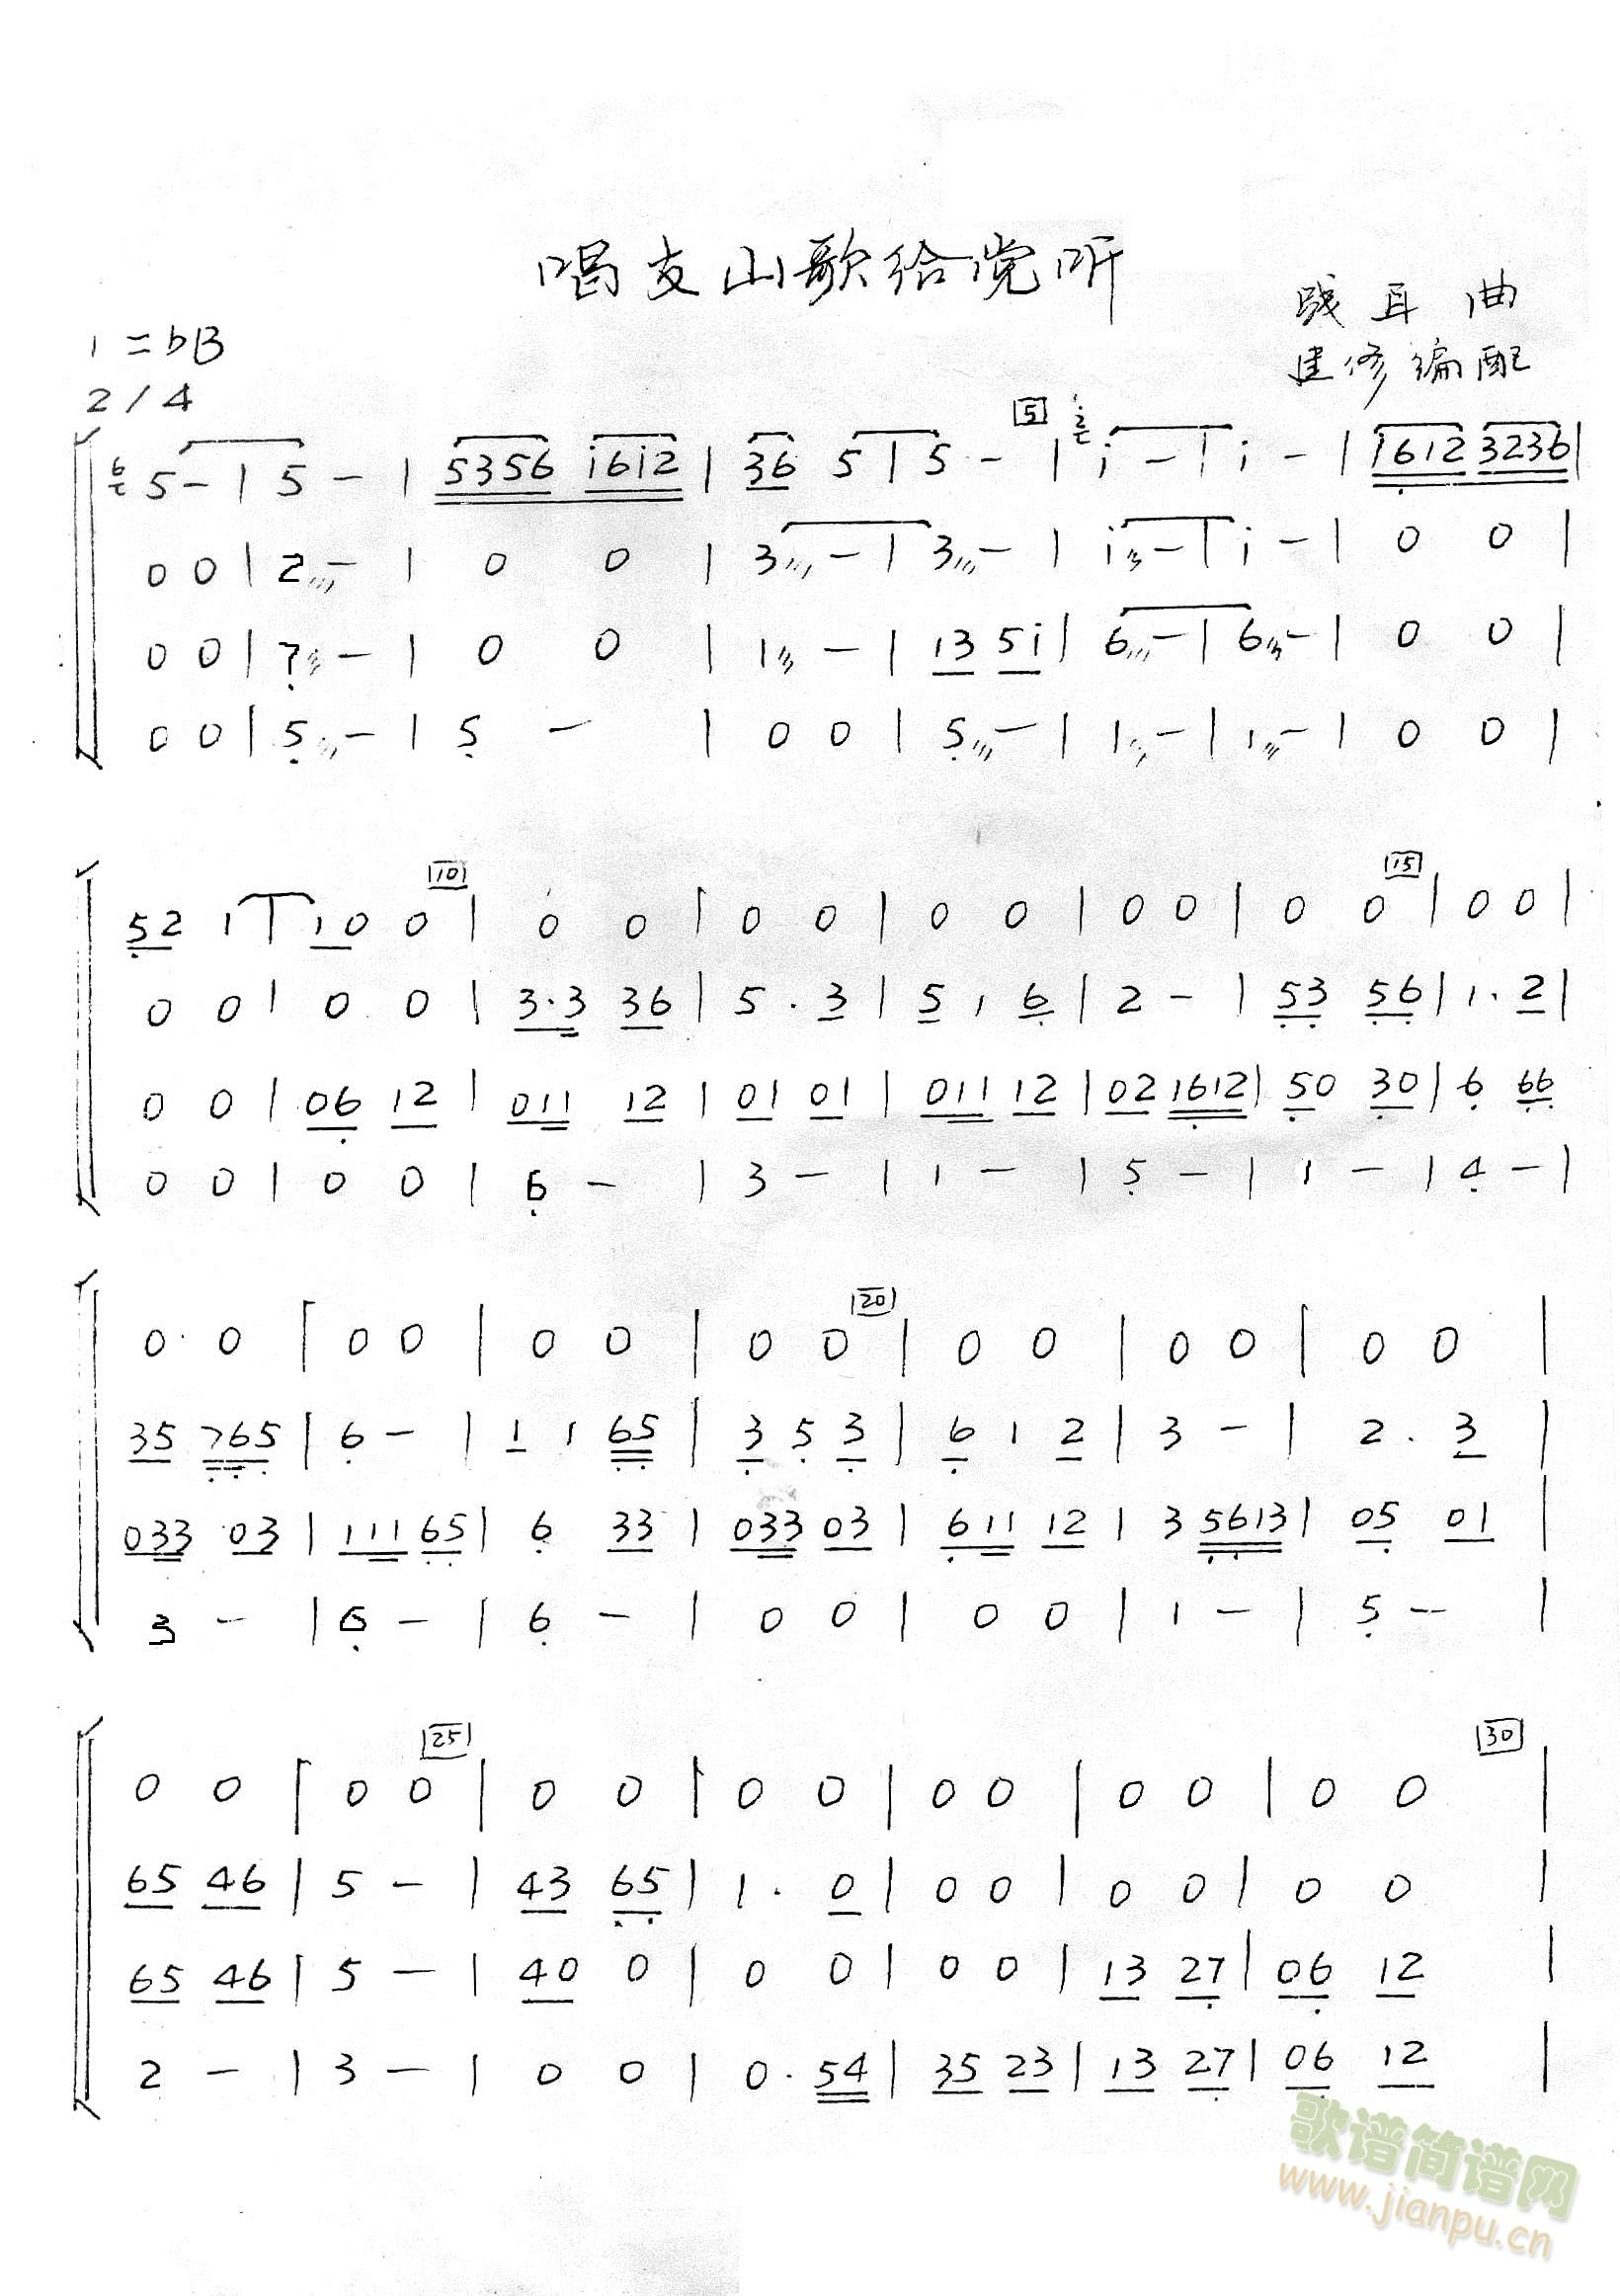 唱支山歌给党听
践耳 曲
1=bB
建修编配
2/4
5
6 5 - | 5 - | 5356 i6i2 | 36 5 | 5 - | 2 i - | i - | 1612 3236 |
0 0 | 2 - | 0 0 | 3 - | 3 - | i - | i - | 0 0 |
0 0 | 7 - | 0 0 | 1 - | 13 5i | 6 - | 6 - | 0 0 |
0 0 | 5 - | 5 - | 0 0 | 5 - | 1 - | 1 - | 0 0 |
10 15
52 1 | 10 0 | 0 0 | 0 0 | 0 0 | 0 0 | 0 0 | 0 0 |
0 0 | 0 0 | 3·3 36 | 5 · 3 | 5 1 6 | 2 - | 53 56 | 1 · 2 |
0 0 | 06 12 | 011 12 | 01 01 | 011 12 | 02 1612 | 50 30 | 6 66
0 0 | 0 0 | 6 - | 3 - | 1 - | 5 - | 1 - | 4 - |
20
0 · 0 | 0 0 | 0 0 | 0 0 | 0 0 | 0 0 | 0 0 |
35 765 | 6 - | 1 1 65 | 3 5 3 | 6 1 2 | 3 - | 2 · 3 |
033 03 | 111 65 | 6 33 | 033 03 | 611 12 | 3 5613 | 05 01 |
3 - | 6 - | 6 - | 0 0 | 0 0 | 1 - | 5 - |
25 30
0 0 | 0 0 | 0 0 | 0 0 | 0 0 | 0 0 | 0 0 |
65 46 | 5 - | 43 65 | 1 · 0 | 0 0 | 0 0 | 0 0 |
65 46 | 5 - | 40 0 | 0 0 | 0 0 | 13 27 | 06 12 |
2 - | 3 - | 0 0 | 0 · 54 | 35 23 | 13 27 | 06 12 |
歌谱简谱网
www.jianpu.cn